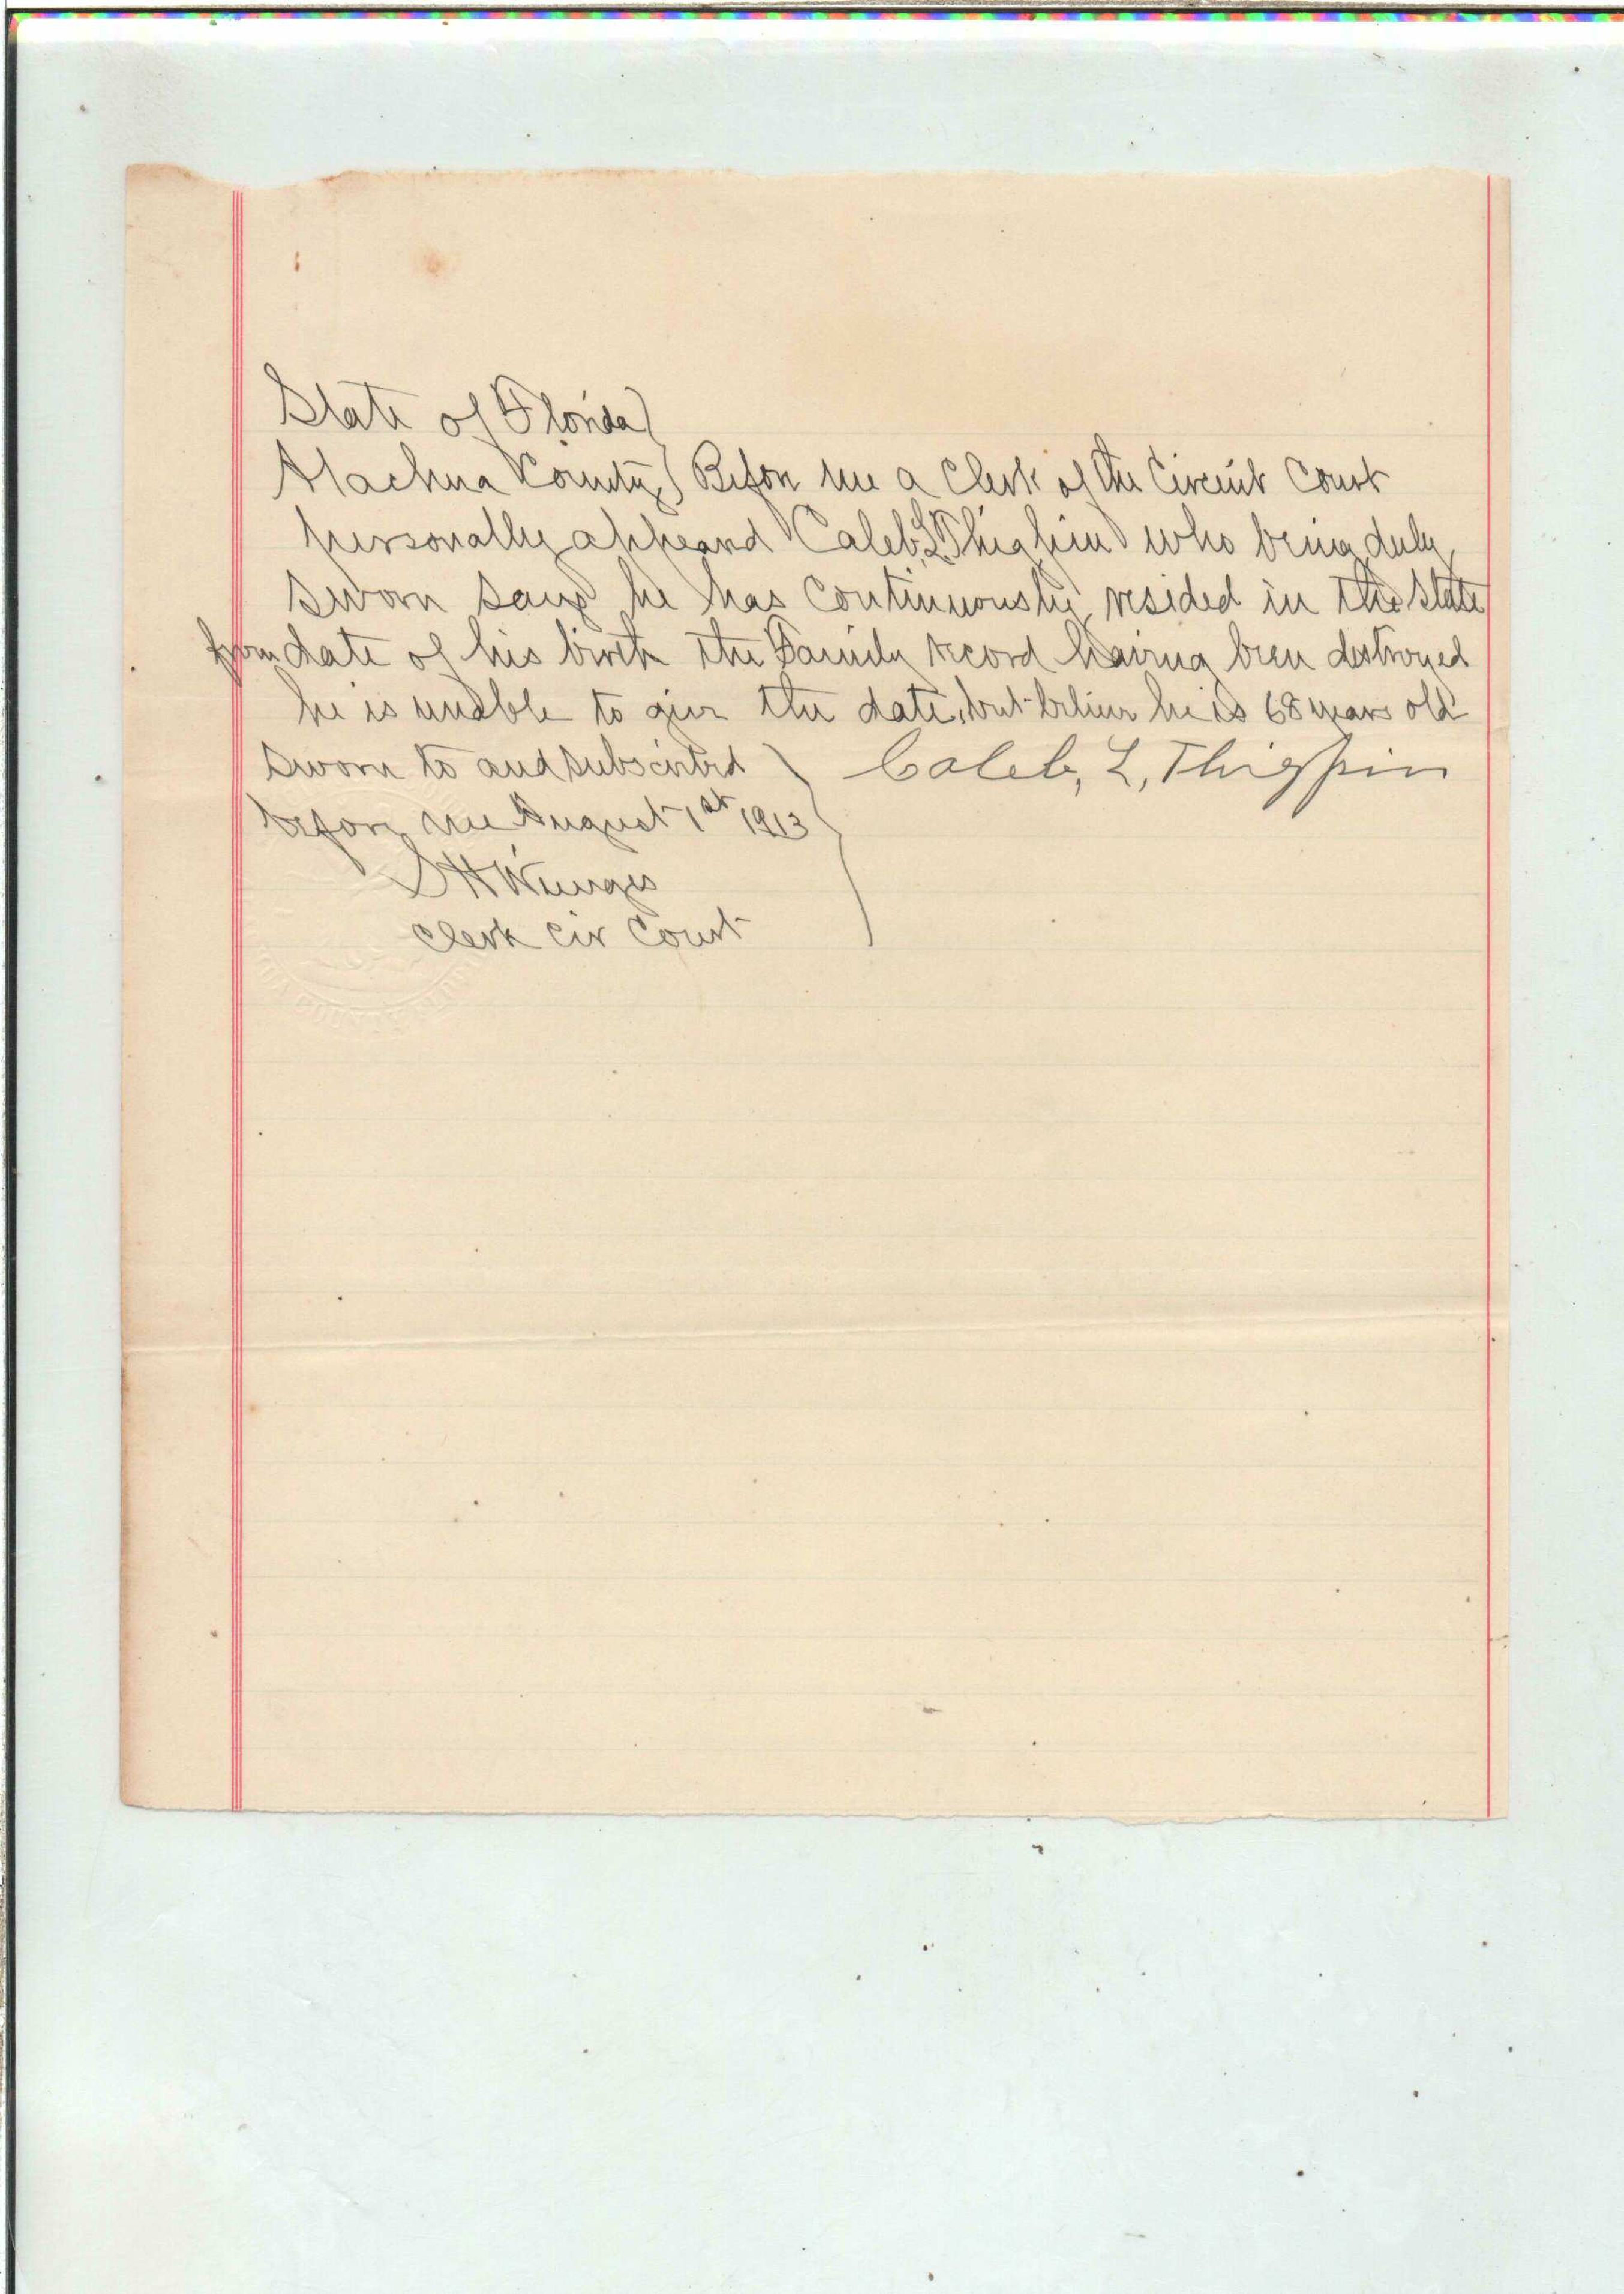 State of Florida
Alachua County Before me a Clerk of the Circuit Court
personally appeard Caleb L Thigpin who being duly
sworn says he has continuously resided in the State
from date of his birth the Family record having been destroyed
he is unable to give the date, but believes he is 68 years old
Sworn to and subscribed Caleb, L, Thigpin
before me August 1st 1913
S H Wienges
Clerk Cir Court